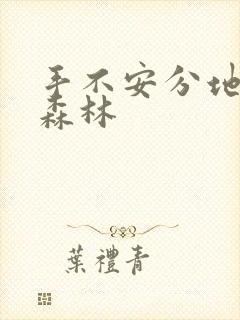 手不安分地
森林
葉禮青